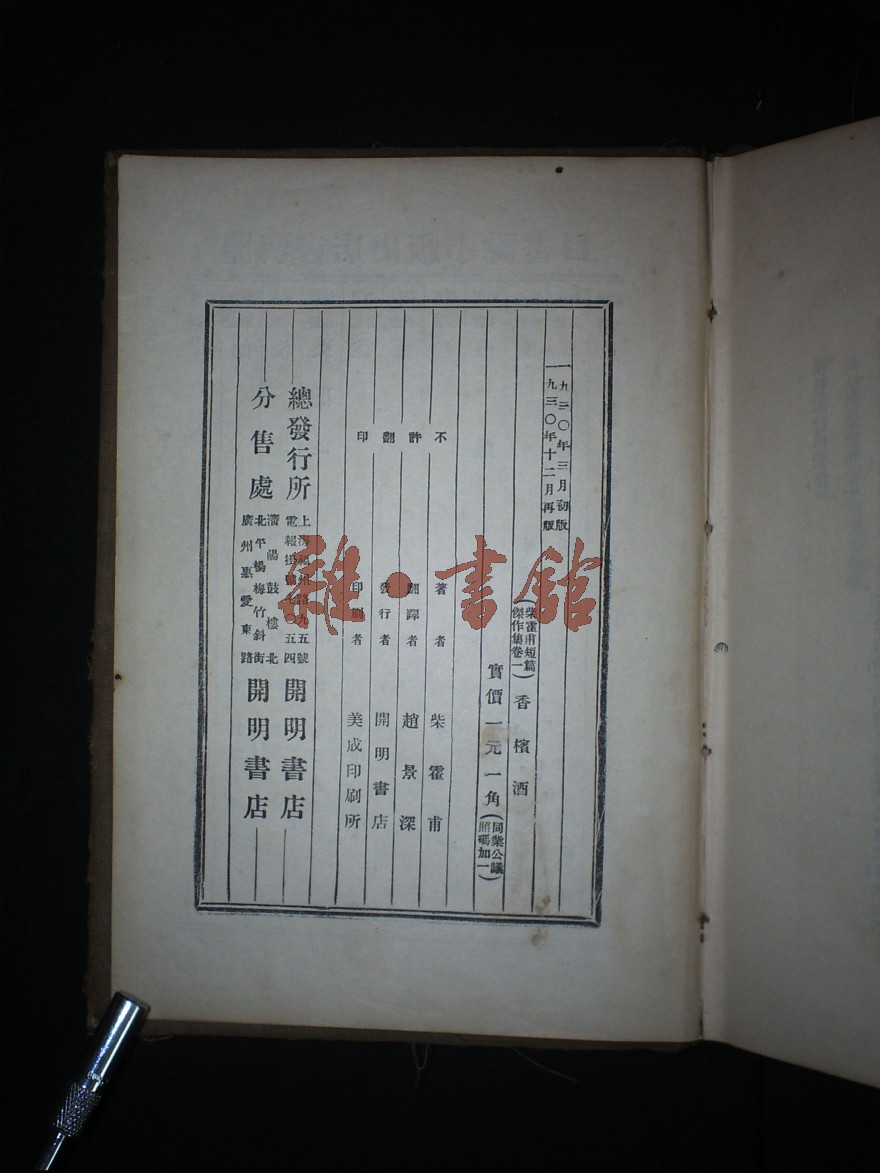 一九三〇年三月初版
一九三〇年十二月再版
(柴霍甫短篇傑作集卷一)香檳酒
實價一元一角(同業公議照碼加一)
不許翻印
著者 柴霍甫
翻譯者 趙景深
發行者 開明書店
印刷者 美成印刷所
總發行所 上海福州路九五號 電報掛號七〇五四 開明書店
分售處 瀋陽鼓樓北 北平楊梅竹斜街 廣州惠愛東路 開明書店
雜·書館